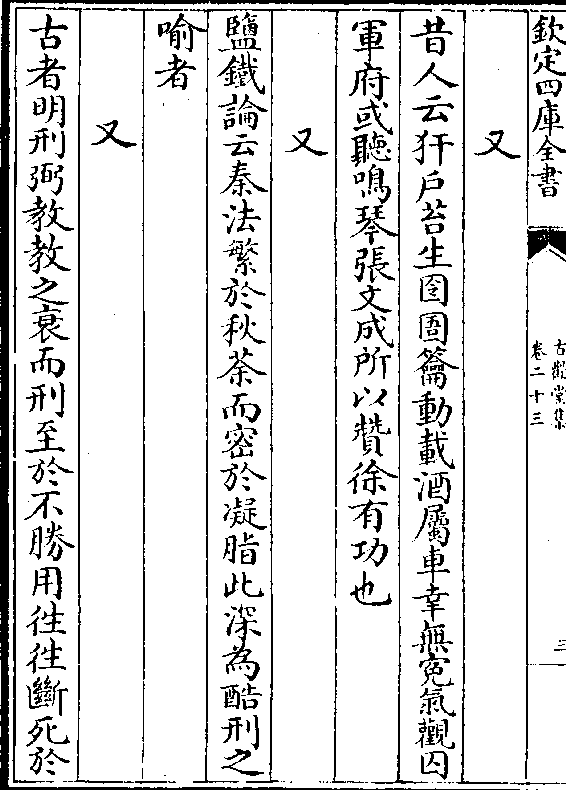 欽定四庫全書
古懽堂集
卷二十三
三
又
昔人云犴戶苔生囹圄籥動載酒屬車幸無寃氣觀囚
軍府或聽鳴琴張文成所以贊徐有功也
又
鹽鐵論云秦法繁於秋荼而密於凝脂此深為酷刑之
喻者
又
古者明刑弼教教之衰而刑至於不勝用徃徃斷死於